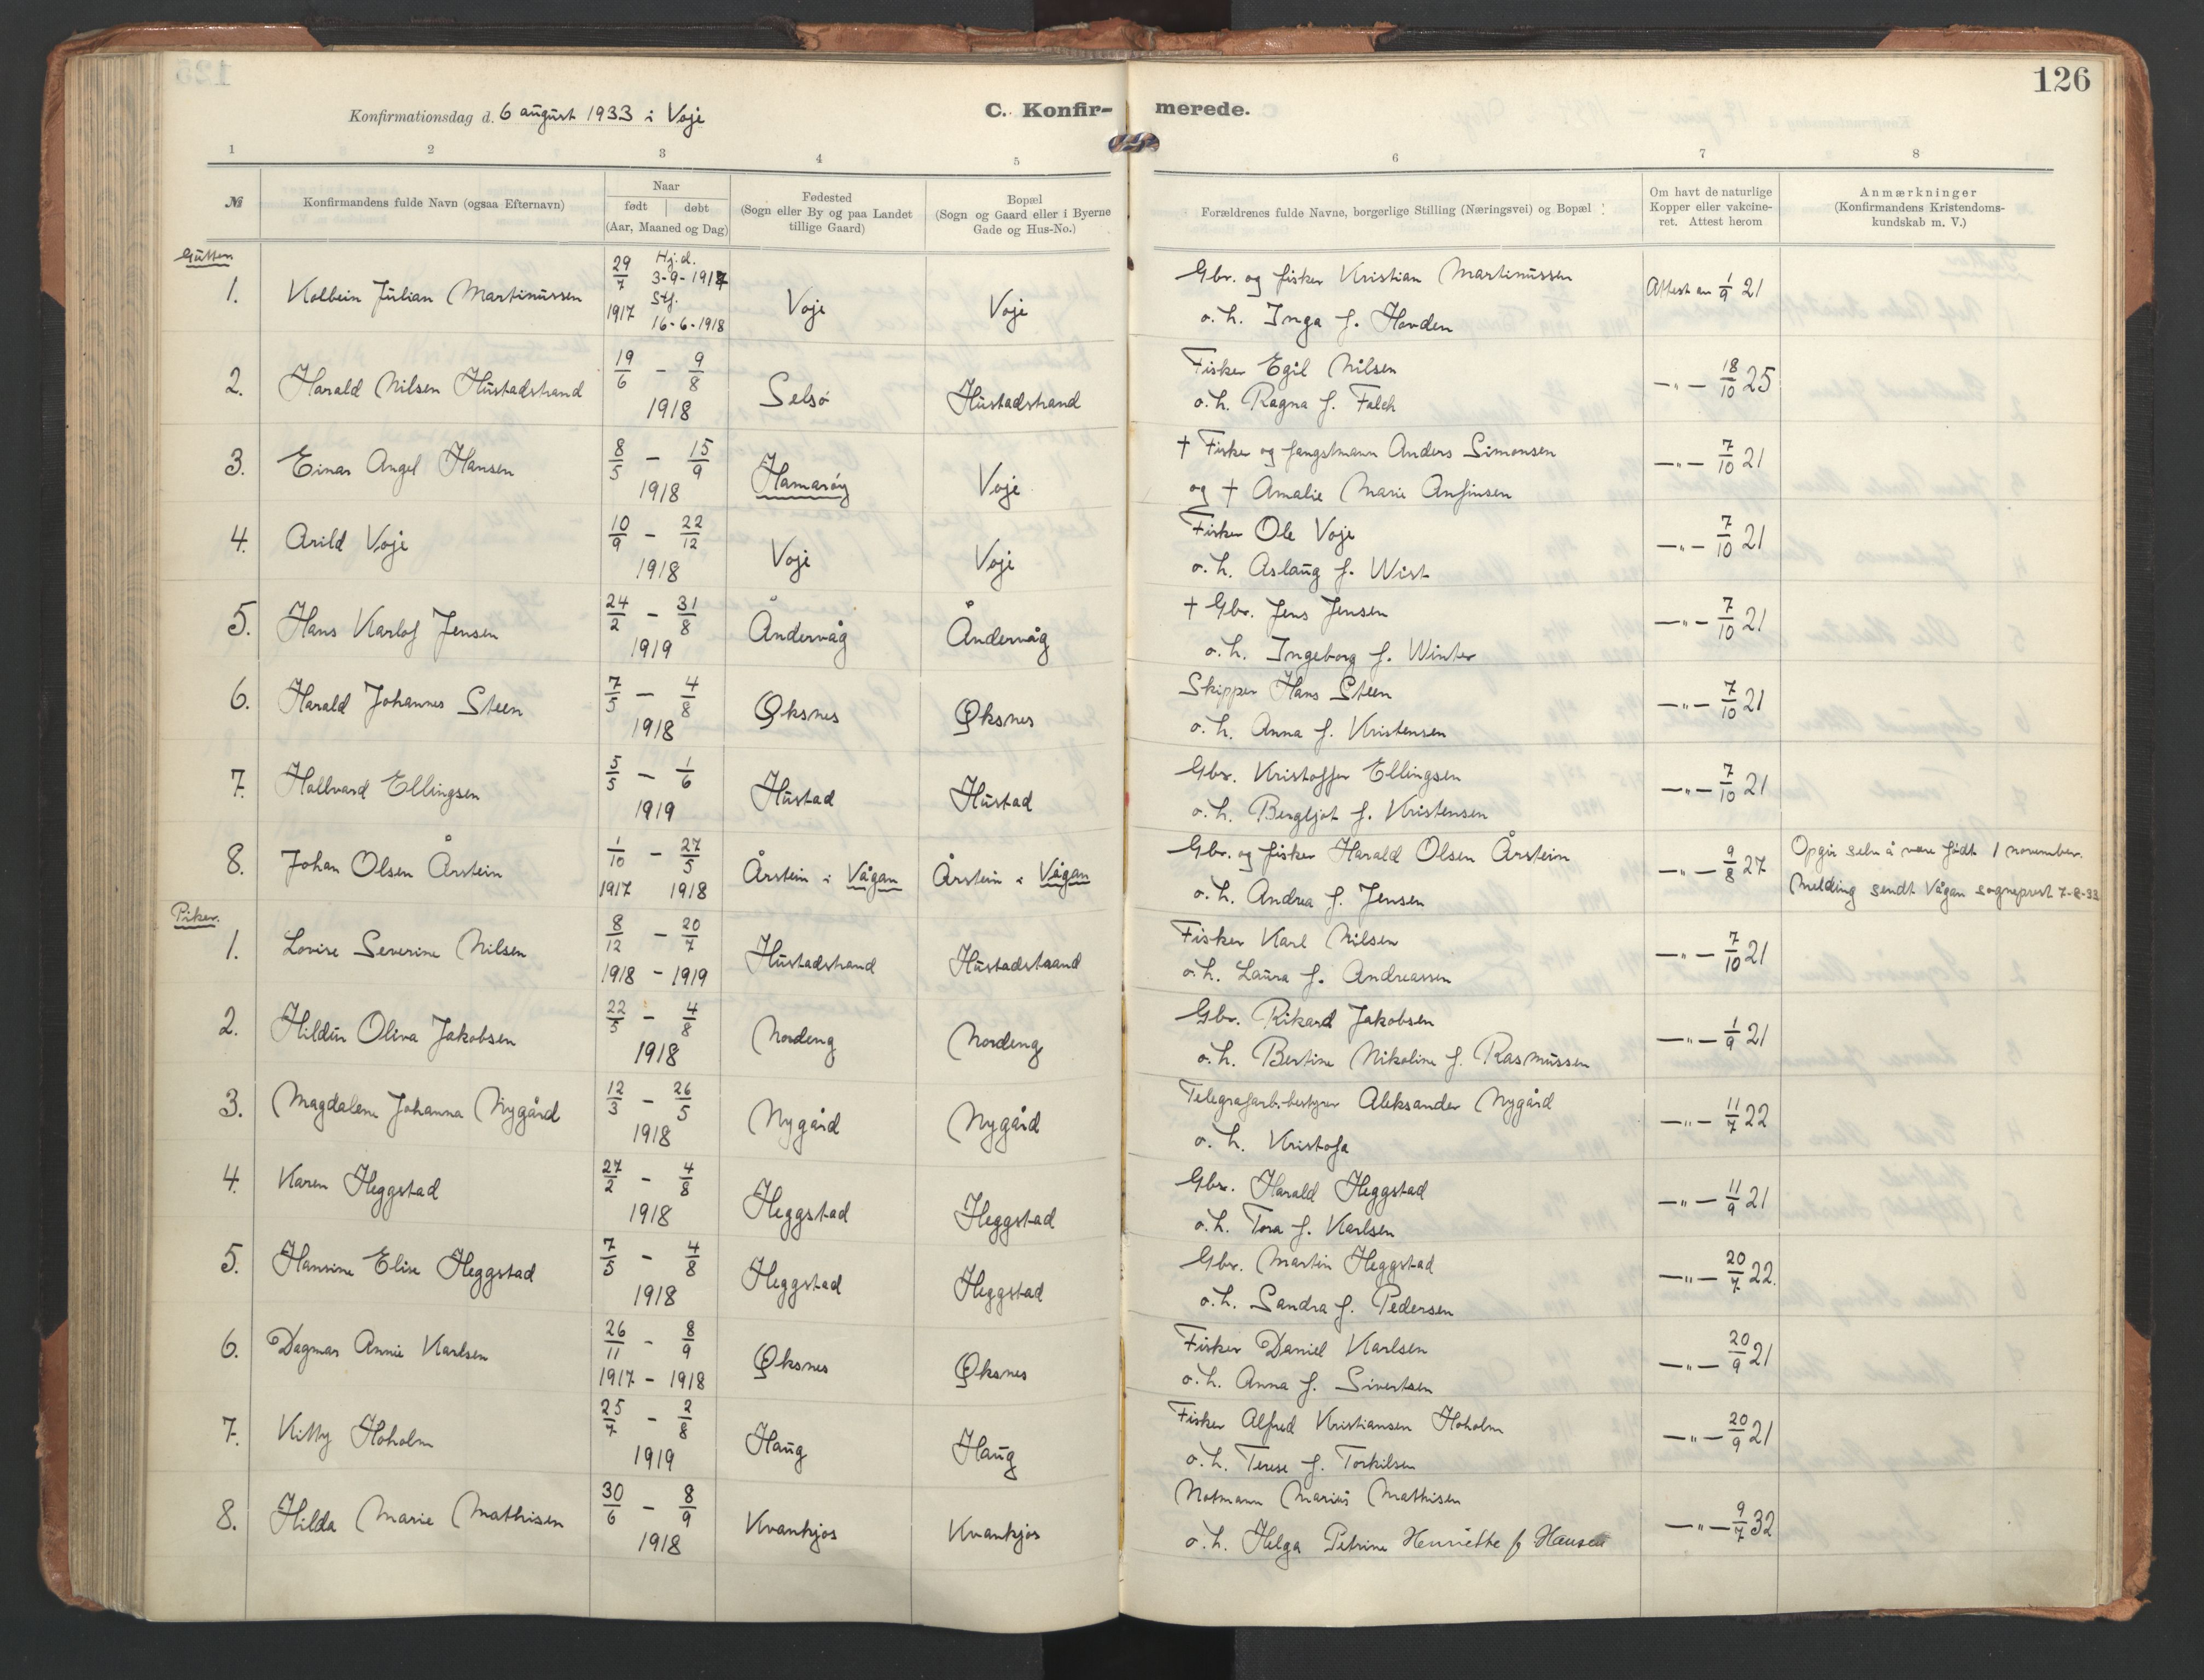 125
126
Konfirmationsdag d. 6 august 1933 i Voje
C. Konfir-
merede.
1 2 3 4 5 6 7 8
№
Konfirmandens fulde Navn (ogsaa Efternavn)
Naar
født | døbt
(Aar, Maaned og Dag)
Fødested
(Sogn eller By og paa Landet
tillige Gaard)
Bopæl
(Sogn og Gaard eller i Byerne
Gade og Hus-No.)
Forældrenes fulde Navne, borgerlige Stilling (Næringsvei) og Bopæl
Om havt de naturlige
Kopper eller vakcine-
ret. Attest herom
Anmærkninger
(Konfirmandens Kristendoms-
kundskab m. V.)
Gutter
1. Kolbein Julian Martinussen 29/7 1917 Hj.d. 3-9-1917 Stf. 16-6-1918 Voje Voje Gbr. og fisker Kristian Martinussen Attest av 1/9 21
o. h. Inga f. Hovden
2. Harald Nilsen Hustadstrand 19/6 - 9/8 1918 Selsø Hustadstrand Fisker Egil Nilsen -"- 18/10 25
o. h. Ragna f. Falch
3. Einar Angel Hansen 8/5 - 15/9 1918 Hamarøy Voje † Fisker og fangstmann Anders Simonsen -"- 7/10 21
og † Amalie Marie Anfinsen
4. Arild Voje 10/9 - 22/12 1918 Voje Voje Fisker Ole Voje -"- 7/10 21
o. h. Aslaug f. Wist
5. Hans Karlof Jensen 24/2 - 31/8 1919 Åndervåg Åndervåg † Gbr. Jens Jensen -"- 7/10 21
o. h. Ingeborg f. Winter
6. Harald Johannes Steen 7/5 - 4/8 1918 Øksnes Øksnes Skipper Hans Steen -"- 7/10 21
o. h. Anna f. Kristensen
7. Hallvard Ellingsen 5/5 - 1/6 1919 Hustad Hustad Gbr. Kristoffer Ellingsen -"- 7/10 21
o. h. Bergljot f. Kristensen
8. Johan Olsen Årstein 1/10 - 27/5 1917 1918 Årstein i Vågan Årstein i Vågan Gbr. og fisker Harald Olsen Årstein -"- 9/8 27 Opgir selv å være født 1 november.
o. h. Andrea f. Jensen Melding sendt Vågan sogneprest 7-8-33
Piker.
1. Lovise Severine Nilsen 8/12 - 20/7 1918 - 1919 Hustadstrand Hustadstrand Fisker Karl Nilsen -"- 7/10 21
o. h. Laura f. Andreassen
2. Hildur Oliva Jakobsen 22/5 - 4/8 1918 Nordeng Nordeng Gbr. Rikard Jakobsen -"- 1/9 21
o. h. Bertine Nikoline f. Rasmussen
3. Magdalene Johanna Nygård 12/3 - 26/5 1918 Nygård Nygård Telegrafarb.bestyrer Aleksander Nygård -"- 11/7 22
o. h. Kristofa
4. Karen Heggstad 27/2 - 4/8 1918 Heggstad Heggstad Gbr. Harald Heggstad -"- 11/9 21
o. h. Tora f. Karlsen
5. Hansine Elise Heggstad 7/5 - 4/8 1918 Heggstad Heggstad Gbr. Martin Heggstad -"- 20/7 22.
o. h. Sandra f. Pedersen
6. Dagmar Annie Karlsen 26/11 - 8/9 1917 - 1918 Øksnes Øksnes Fisker Daniel Karlsen -"- 20/9 21
o. h. Anna f. Sivertsen
7. Kitty Hoholm 25/7 - 2/8 1919 Haug Haug Fisker Alfred Kristiansen Hoholm -"- 20/9 21
o. h. Terese f. Torkilsen
8. Hilda Marie Mathisen 30/6 - 8/9 1918 Kvankjos Kvankjos Notmann Marius Mathisen -"- 9/7 32
o. h. Helga Petrine Henriette f Hansen